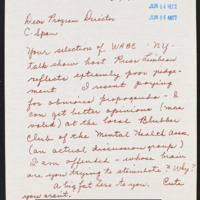 JUN 14 1993
JUN 15 1993
Dear Program Director
C-Span
Your selection of WABC - NY-
talk show host Russ Limbau
reflects extremely poor judge-
ment I resent paying
for obscure propaganda - I
can get better opinions (more
valid) at the local Blubber
Club of the Mental Health Assn.
(an actual discussion group)
I am offended - whose brain
are you trying to stimulate? Why?
A big fat hiss to you.
you aren't.